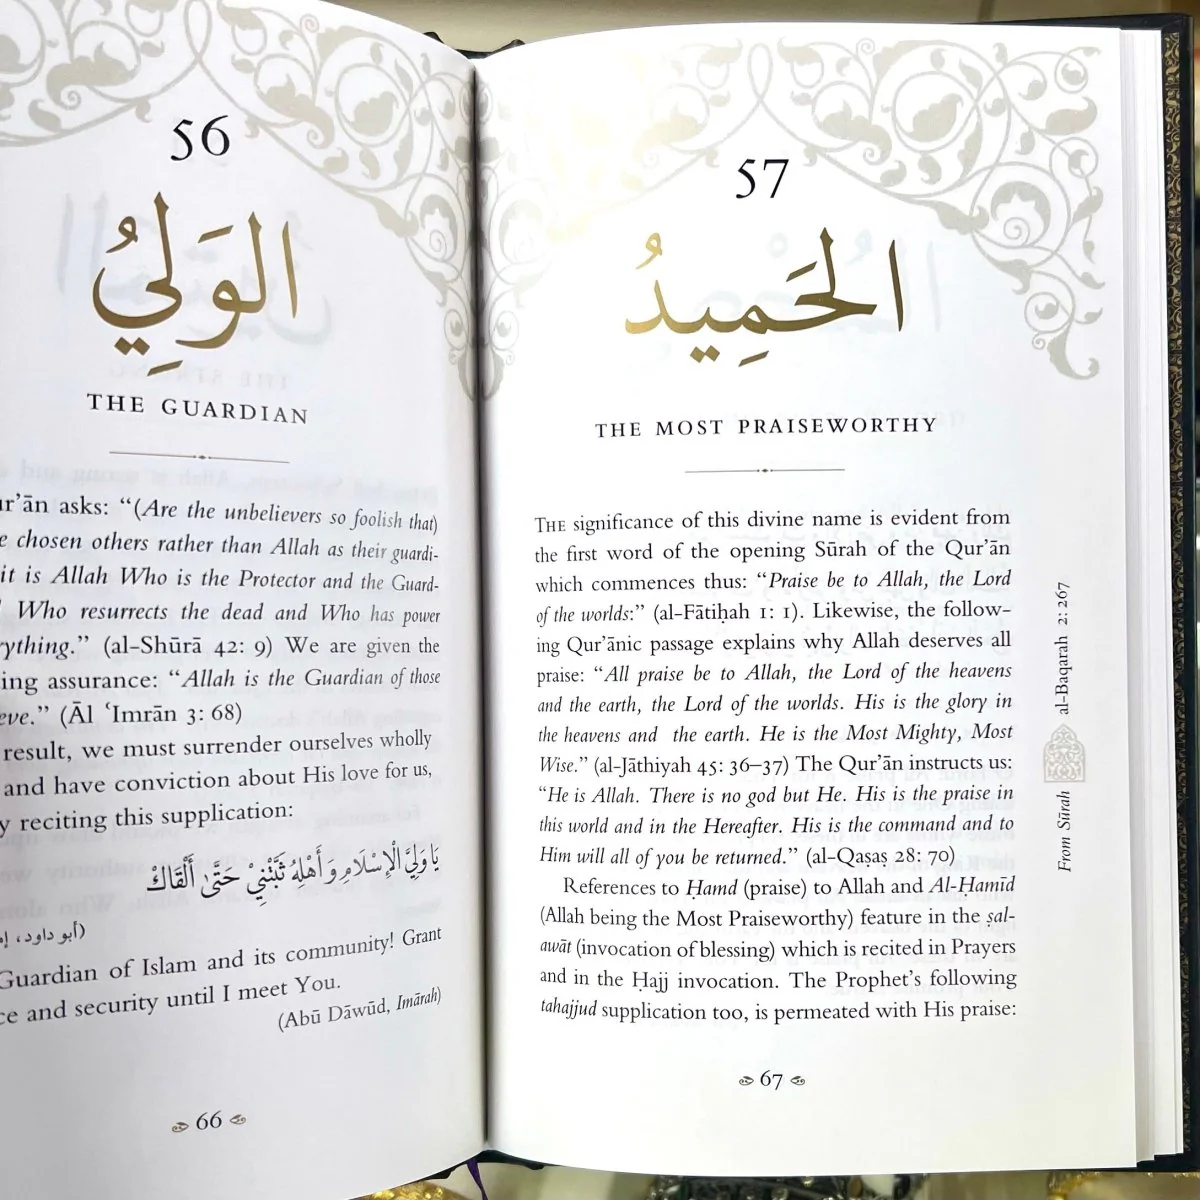 56
الوَلِيُّ
THE GUARDIAN
asks: “(Are the unbelievers so foolish that)
chosen others rather than Allah as their guardi-
it is Allah Who is the Protector and the Guard-
Who resurrects the dead and Who has power
(al-Shūrā 42: 9) We are given the
assurance: “Allah is the Guardian of those
(Āl ‘Imrān 3: 68)
result, we must surrender ourselves wholly
and have conviction about His love for us,
reciting this supplication:
يَا وَلِيَّ الْإِسْلَامِ وَأَهْلِهِ ثَبِّتْنِيْ حَتَّىٰ أَلْقَاكَ
(أبو داود،
Guardian of Islam and its community! Grant
and security until I meet You.
(Abū Dāwūd, Imārah)
66
57
الحَمِيدُ
THE MOST PRAISEWORTHY
THE significance of this divine name is evident from
the first word of the opening Sūrah of the Qur’ān
which commences thus: “Praise be to Allah, the Lord
of the worlds:” (al-Fātiḥah 1: 1). Likewise, the follow-
ing Qur’ānic passage explains why Allah deserves all
praise: “All praise be to Allah, the Lord of the heavens
and the earth, the Lord of the worlds. His is the glory in
the heavens and the earth. He is the Most Mighty, Most
Wise.” (al-Jāthiyah 45: 36–37) The Qur’ān instructs us:
“He is Allah. There is no god but He. His is the praise in
this world and in the Hereafter. His is the command and to
Him will all of you be returned.” (al-Qaṣaṣ 28: 70)
References to Ḥamd (praise) to Allah and Al-Ḥamīd
(Allah being the Most Praiseworthy) feature in the ṣal-
awāt (invocation of blessing) which is recited in Prayers
and in the Ḥajj invocation. The Prophet’s following
tahajjud supplication too, is permeated with His praise:
67
From Sūrah al-Baqarah 2: 267